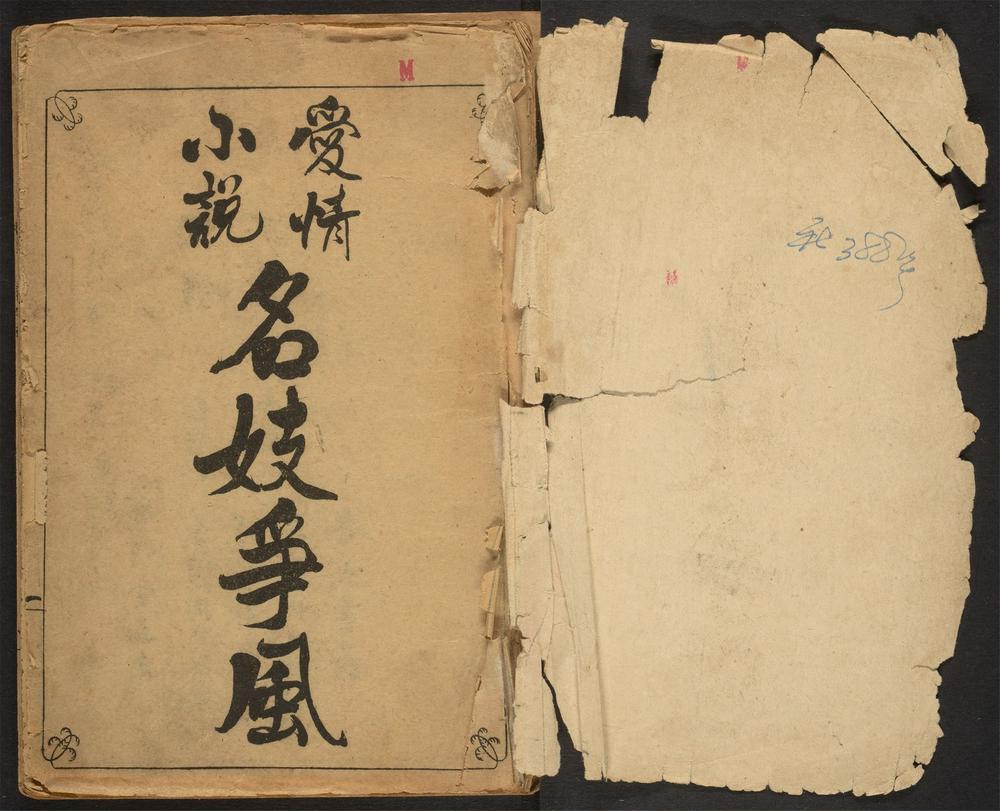 愛情
小說
名妓爭風
M
M
M
388号